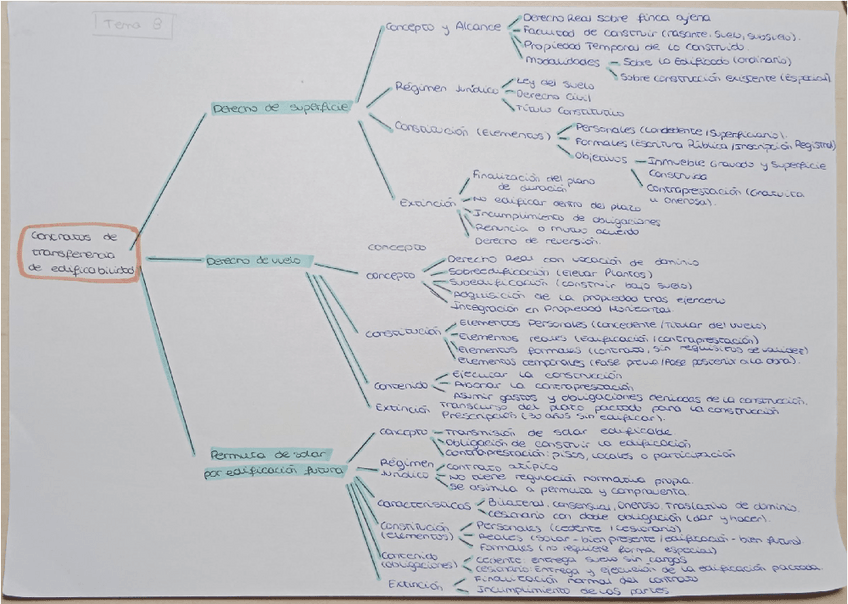 Tema 8
Contratos de
transferencia
de edificabilidad
Derecho de superficie
Concepto y Alcance
Derecho Real sobre finca ajena
Facultad de construir (rasante, suelo, subsuelo).
Propiedad Temporal de lo construido
Modalidades
Sobre lo Edificado (ordinario)
Sobre construcción existente (Especial)
Régimen Jurídico
Ley del suelo
Derecho Civil
Título Constitutivo
Constitución (Elementos)
Personales (Concedente/Superficiario).
Formales (Escritura Pública/Inscripción Registral)
Objetivos
Inmueble Gravado y Superficie
Construida
Contraprestación (Gratuita
u onerosa).
Extinción
Finalización del plano
de duración
No edificar dentro del plazo
Incumplimiento de obligaciones
Renuncia o mutuo acuerdo
Derecho de reversión.
Derecho de vuelo
concepto
concepto
Derecho Real con vocación de dominio
Sobreedificación (Elevar Plantas)
Subedificación (construir bajo suelo)
Adquisición de la propiedad tras ejercerlo
Integración en Propiedad Horizontal
constitución
Elementos Personales (Concedente/Titular del vuelo)
Elementos reales (Edificación/contraprestación)
Elementos formales (contrato, sin requisitos de validez)
Elementos temporales (Fase previa/Fase posterior a la obra).
Contenido
Ejecutar la construcción
Abonar la contraprestación
Asumir gastos y obligaciones derivadas de la construcción.
Extinción
Transcurso del plazo pactado para la construcción
Prescripción (30 años sin edificar).
Permuta de solar
por edificación futura
concepto
Transmisión de solar edificable
Obligación de construir la edificación
Contraprestación: pisos, locales o participación
Régimen
Jurídico
Contrato atípico
No tiene regulación normativa propia.
Se asimila a permuta y compraventa.
Características
Bilateral, consensual, oneroso traslativo de dominio.
Cesionario con doble obligación (dar y hacer).
Constitución
(elementos)
Personales (cedente/cesionario)
Reales (Solar - bien presente/edificación - bien futuro)
Formales (no requiere forma especial)
Contenido
(obligaciones)
Cedente: entrega suelo sin cargas
Cesionario: Entrega y ejecución de la edificación pactada.
Extinción
Finalización normal del contrato
Incumplimiento de las partes